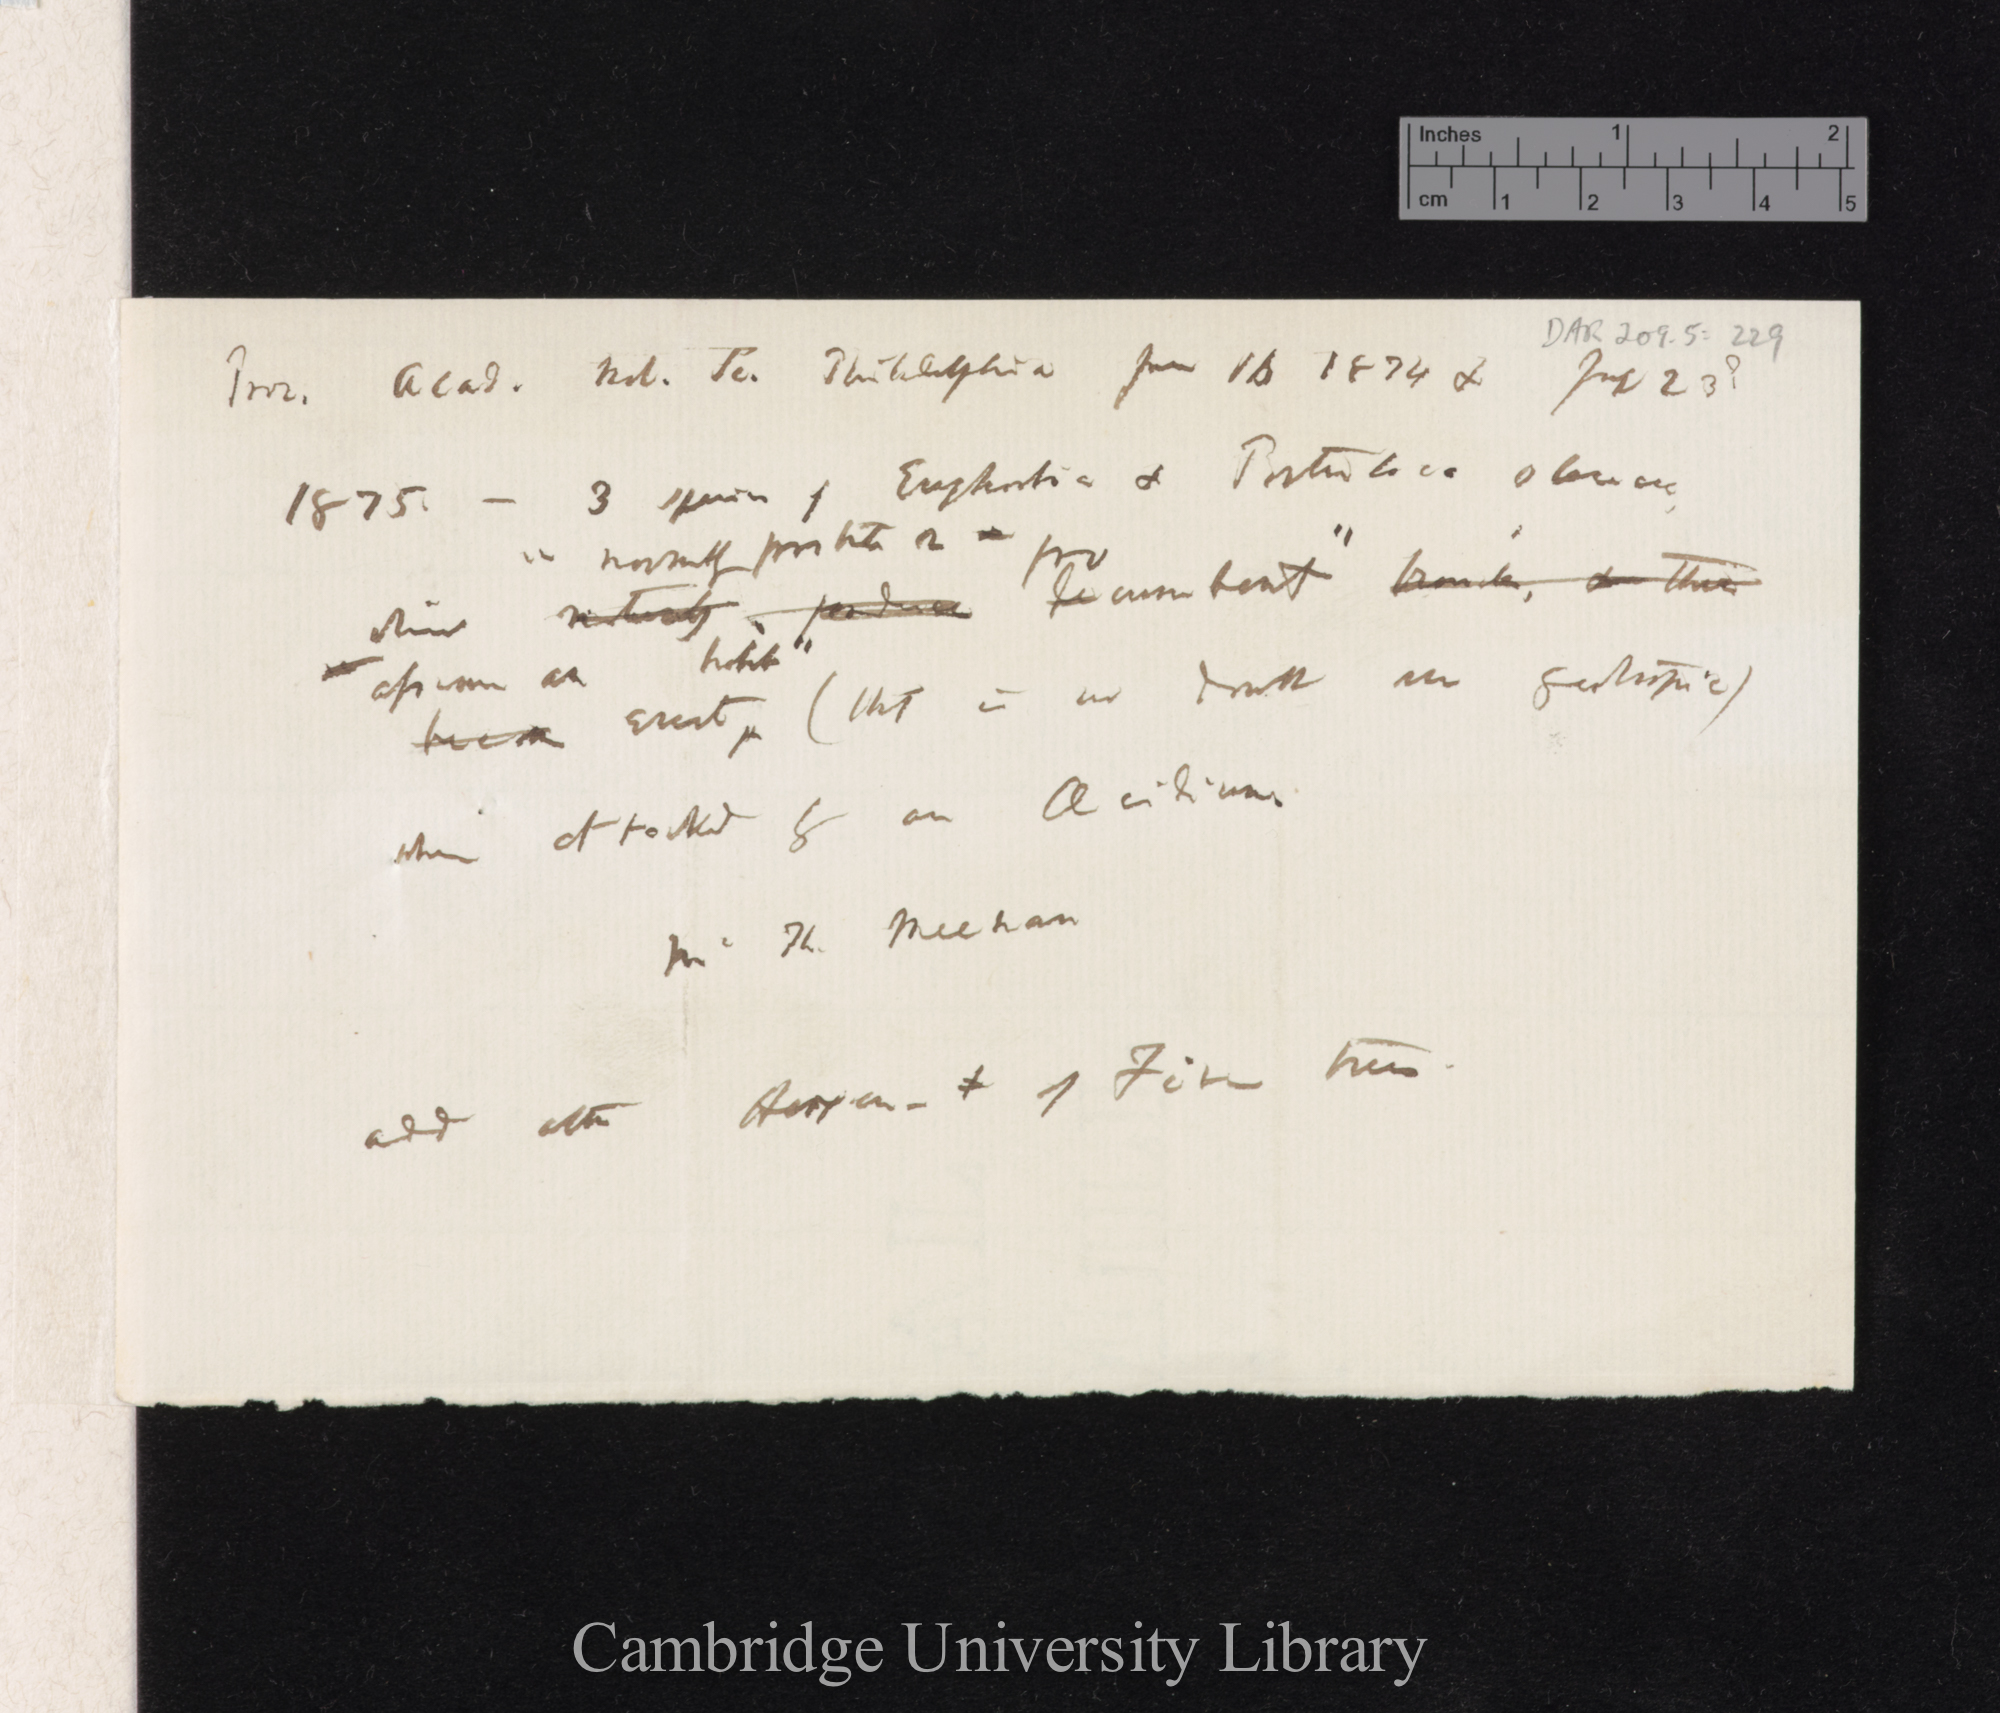 Inches 1 2
cm 1 2 3 4 5
DAR 209.5: 229
Proc. Acad. Nat. Sc. Philadelphia June 16 1874 & July 23?
1875. — 3 species of Euphorbia & Portulaca oleracea,
" normally prostrate or pro
which naturally produce decumbent" branches, & these
assume an habit"
become erect, (that is no doubt geotropic)
when attacked by an Æcidium.
Mr Th. Meehan
add after of Fir trees.
Cambridge University Library